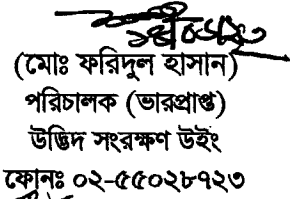 (মোঃ ফরিদুল হাসান)
পরিচালক (ভারপ্রাপ্ত)
উদ্ভিদ সংরক্ষণ উইং
ফোনঃ ০২-৫৫০২৮৭২৩